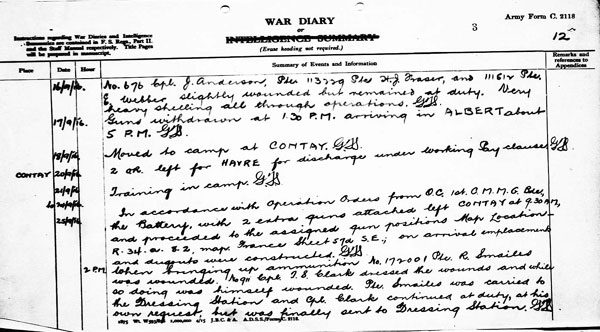 WAR DIARY
or
INTELLIGENCE SUMMARY
(Erase heading not required.)
Instructions regarding War Diaries and Intelligence
Summaries are contained in F. S. Regs., Part II.
and the Staff Manual respectively. Title Pages
will be prepared in manuscript.
3
Army Form C. 2118
12
Place
Date
Hour
Summary of Events and Information
Remarks and
references to
Appendices
16/9/16. No. 676 Cpl. J. Anderson, Ptes 113229 Pte H.J. Fraser, and 111612 Pte.
E. Webber slightly wounded but remained at duty. Very
heavy shelling all through operations.
17/9/16. Guns withdrawn at 1.30 P.M. arriving in ALBERT about
5 P.M.
18/9/16. Moved to camp at CONTAY.
CONTAY 20/9/16. 2 OR. left for HAVRE for discharge under working Pay clause
21/9/16 Training in camp.
to
25/9/16. In accordance with Operation Orders from O.C. 1st. C.M.M.G. Bde,
the Battery, with 2 extra guns attached left CONTAY at 9.30 A.M,
and proceeded to the assigned gun positions Map Location
R.34.a.8.2, map France Sheet 57d S.E; on arrival emplacements
and dugouts were constructed.
2 P.M. When bringing up ammunition No. 172001 Pte. R. Smailes
was wounded, Cpl T.S. Clark dressed the wounds and while
so doing was himself wounded. Pte. Smailes was carried to
the Dressing Station and Cpl. Clark continued at duty, at his
own request, but was finally sent to Dressing Station.
1,000,000 J.B.C. & A. A.D.S.S./Forms/C. 2118.